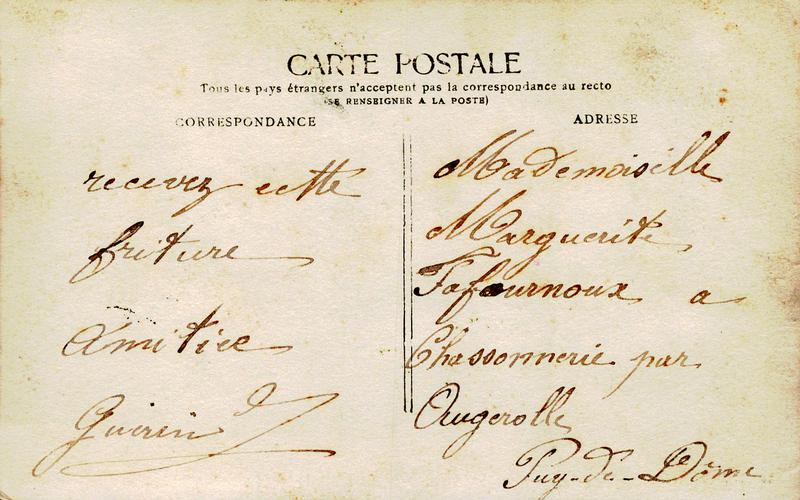 CARTE POSTALE
Tous les pays étrangers n'acceptent pas la correspondance au recto
(SE RENSEIGNER A LA POSTE)
CORRESPONDANCE
recevez cette
friture
Amitiee
Guerin
ADRESSE
Mademoiselle
Marguerite
Fafournoux a
Chassonnerie par
Augerolle
Puy-de-Dôme